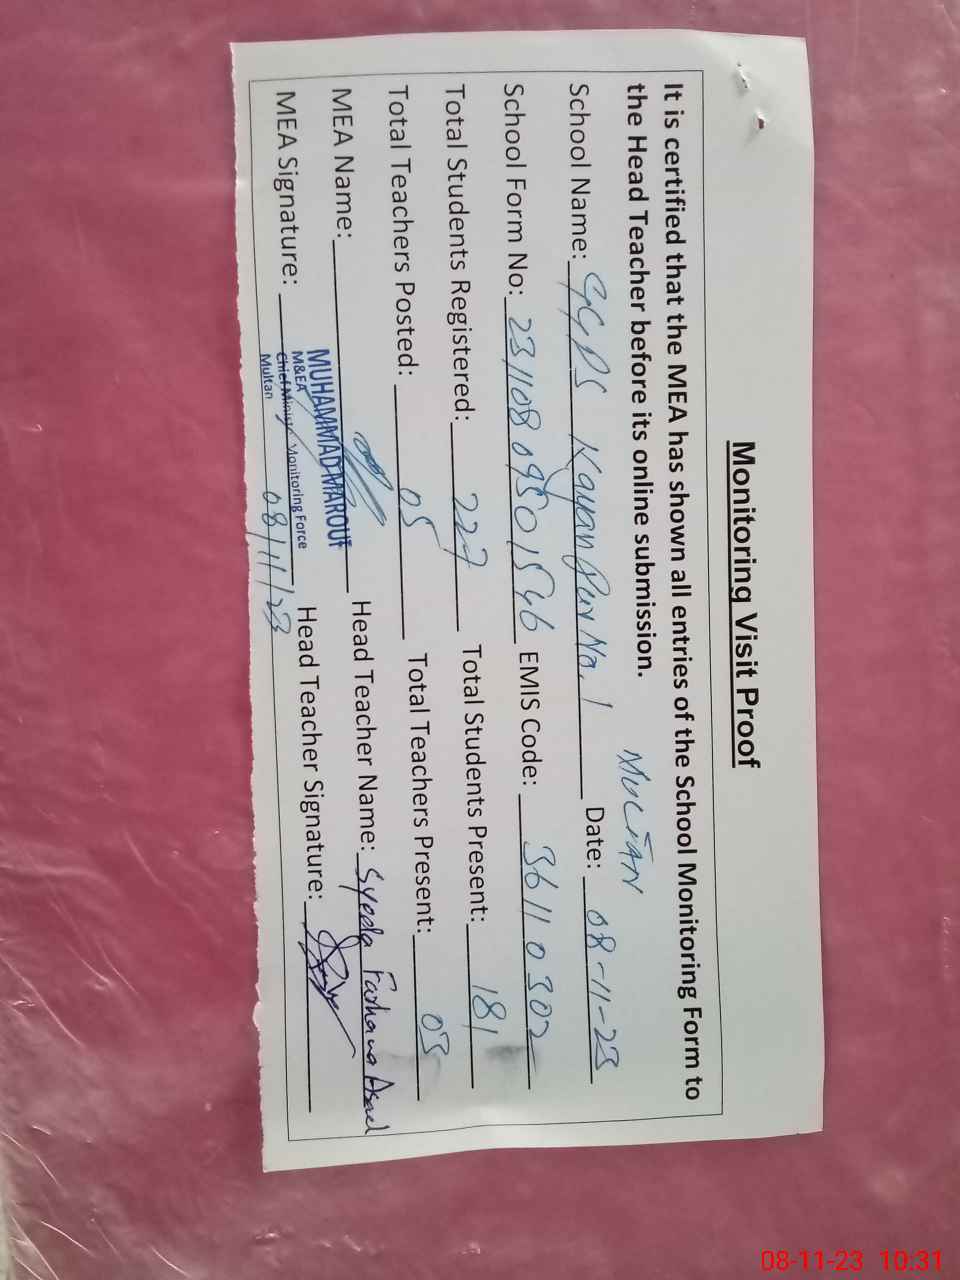 Monitoring Visit Proof
It is certified that the MEA has shown all entries of the School Monitoring Form to
the Head Teacher before its online submission.
MULTAN
School Name: GGPS Kayanpur No. 1 Date: 08-11-23
School Form No: 23110809501546 EMIS Code: 36110302
Total Students Registered: 227 Total Students Present: 181
Total Teachers Posted: 05 Total Teachers Present: 03
MEA Name: MUHAMMAD MAROUF Head Teacher Name: Syeda Farhana Asad
M&EA
MEA Signature: Head Teacher Signature:
Monitoring Force
Multan
08/11/23
08-11-23 10:31